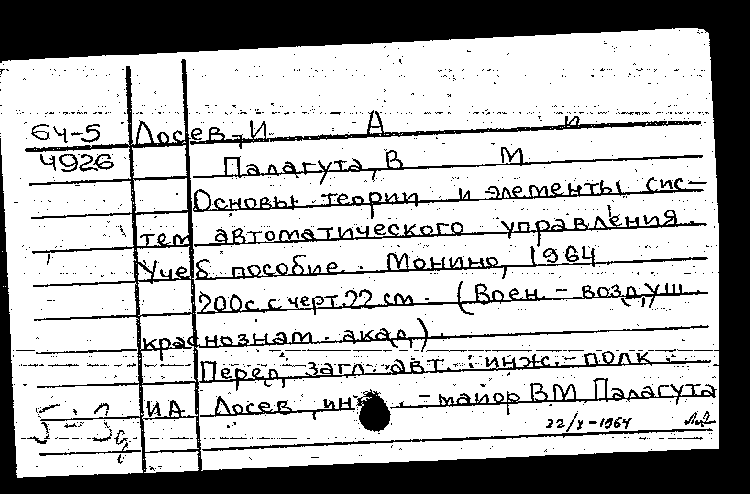 64-5 Лосев, И А и
4926 Палагута, В М
Основы теории и элементы сис-
тем автоматического управления.
Учеб пособие. Монино, 1964
200с. с черт. 22 см. (Воен. - воздуш
краснознам. акад.).
Перед, загл. авт.: инж. - полк.
ИА Лосев, инж. - майор ВМ Палагута
5-3д
22/X-1964